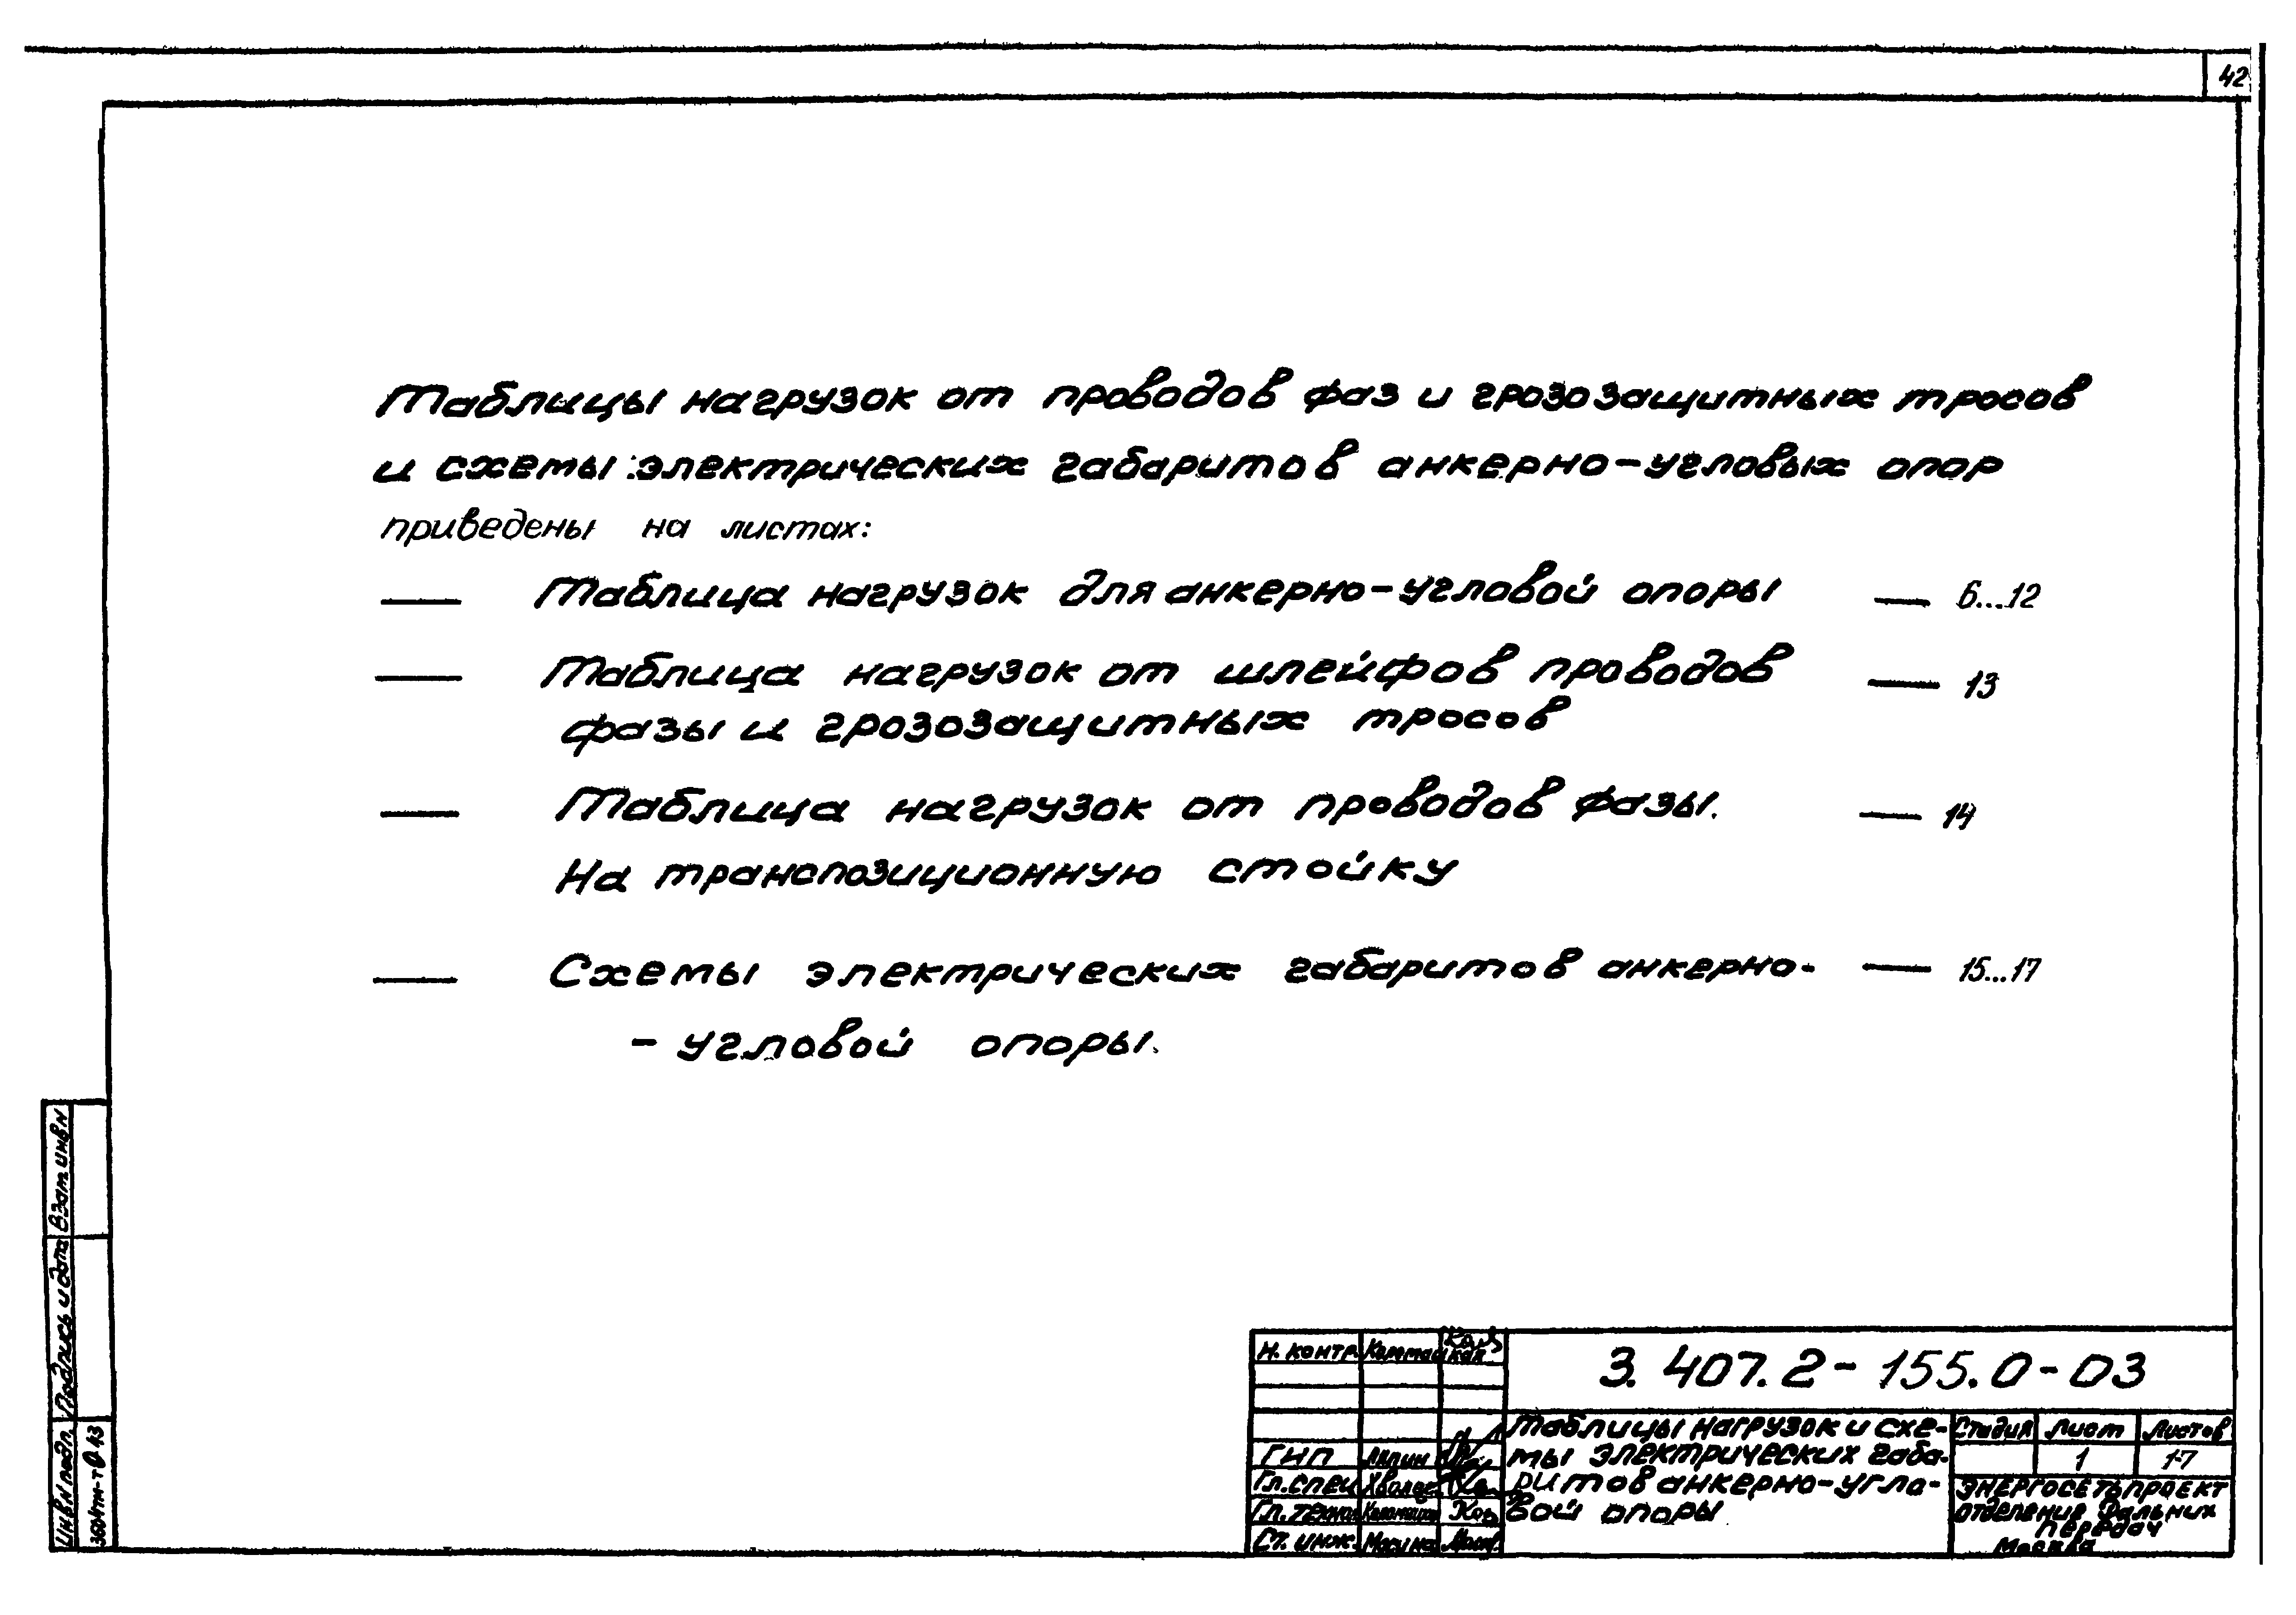 42
Таблицы нагрузок от проводов фаз и грозозащитных тросов
и схемы электрических габаритов анкерно-угловых опор
приведены на листах:
— Таблица нагрузок для анкерно-угловой опоры — 6...12
— Таблица нагрузок от шлейфов проводов — 13
фазы и грозозащитных тросов
— Таблица нагрузок от проводов фазы. — 14
На транспозиционную стойку
— Схемы электрических габаритов анкерно- — 15...17
- угловой опоры.
Взам инв N
Подпись и дата
Инв N подл.
Н. контр.
3. 407. 2 - 155. 0 - 03
Таблицы нагрузок и схе-
мы электрических габа-
ритов анкерно-угло-
вой опоры
Стадия Лист Листов
1 17
ГНП Ляпин
Гл. спец
Гл. техно
Ст. инж.
ЭНЕРГОСЕТЬПРОЕКТ
отделение Дальних
передач
Москва